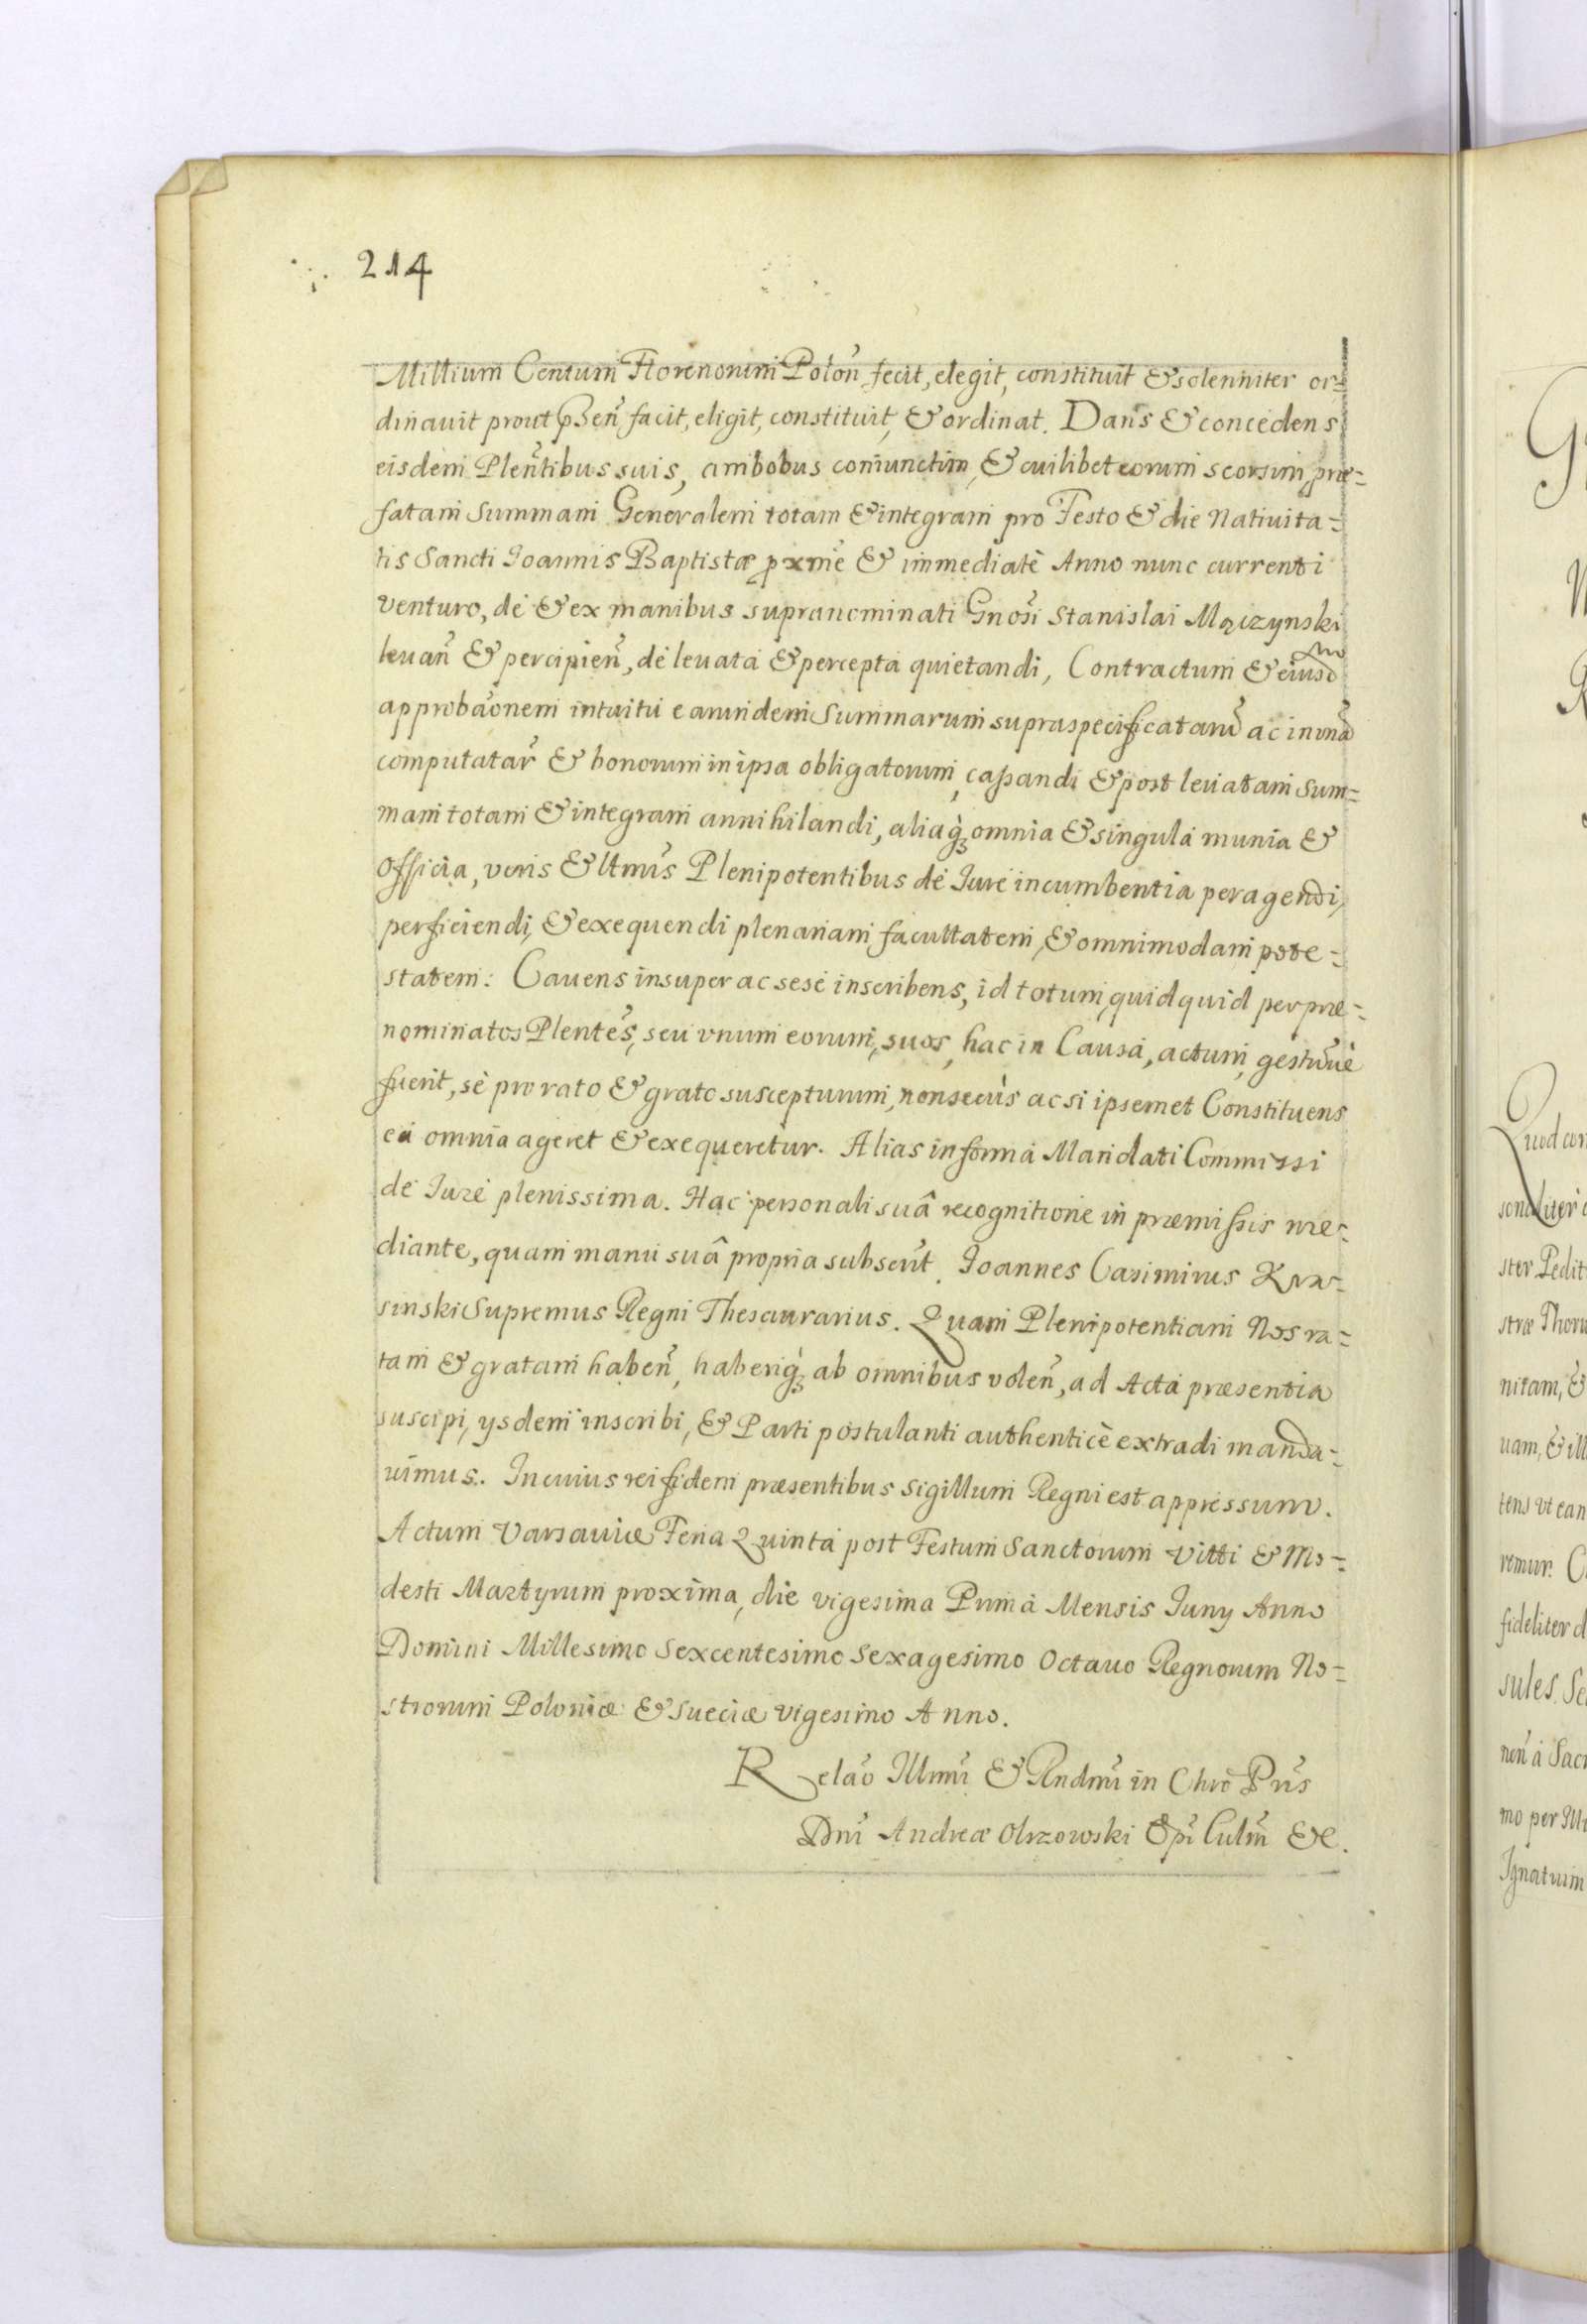 214
Millium Centum Florenorum Polon̄ fecit, elegit, constituit & solenniter or=
dinauit prout p̄sen̄ facit, eligit, constituit, & ordinat. Dans & concedens
eisdem Plen̄tibus suis, ambobus coniunctim, & cuilibet eorum seorsim, præ=
fatam Summam Generalem totam & integram pro Festo & die Natiuita=
tis Sancti Ioannis Baptistæ pxmē & immediatè Anno nunc currenti
venturo, de & ex manibus supranominati Gnosi Stanislai Mączynski
leuan̄ & percipien̄, de leuata & percepta quietandi, Contractum & eiusd
approbãonem intuitu earundem Summarum supraspecificatarū ac in vnā
computatar̄ & bonorum in ipsa obligatorum, cassandi & post leuatam Sum=
mam totam & integram annihilandi, aliaq́ʒ omnia & singula munia &
Officia, veris & ltmis Plenipotentibus de Iure incumbentia peragendi,
perficiendi, & exequendi plenariam facultatem, & omnimodam pote=
statem: Cauens insuper ac sese inscribens, id totum, quidquid per præ=
nominatos Plentes, seu vnum eorum, suos, hac in Causa, actum, gestūuè
fuerit, se pro rato & grato suscepturum, non secùs ac si ipsemet Constituens
ea omnia ageret & exequeretur. Alias in forma Mandati Commissi
de Iure plenissima. Hac personali suâ recognitione in præmissis me=
diante, quam manu suâ propria subscrīt. Ioannes Casimirus Kra=
sinski Supremus Regni Thesaurarius. Quam Plenipotentiam Nos ra=
tam & gratam haben̄, haberiq́ʒ ab omnibus volen̄, ad Acta præsentia
suscipi, ysdem inscribi, & Parti postulanti authenticè extradi manda=
uimus. In cuius rei fidem præsentibus Sigillum Regni est appressum.
Actum Varsauiæ Feria Quinta post Festum Sanctorum Vitti & Mo=
desti Martyrum proxima, die vigesima Prima Mensis Iuny Anno
Domini Millesimo Sexcentesimo Sexagesimo Octauo Regnorum No=
strorum Poloniæ & Sueciæ vigesimo Anno.
Relão Illmi & Rndmi in Chrō Pris
Dni Andreæ Olszowski Epī Culm̄ &c.